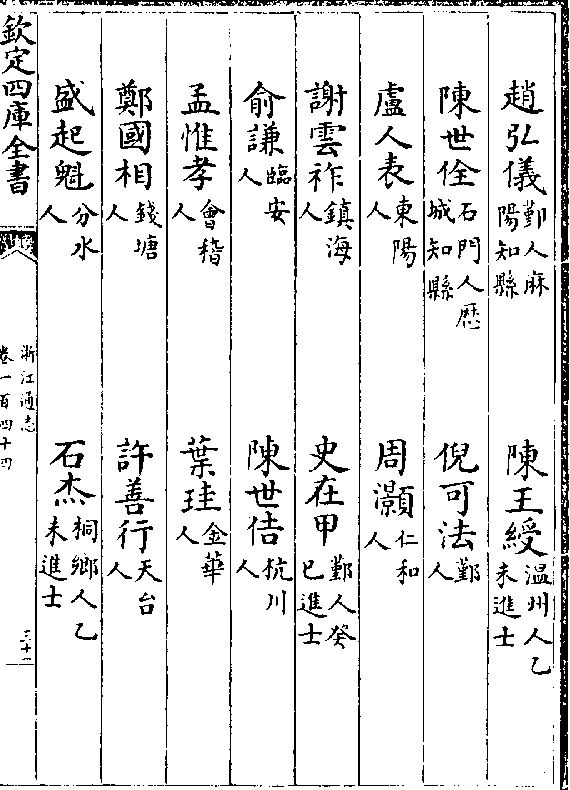 趙弘儀鄞人麻陽知縣　陳王綬温州人乙未進士
陳世佺石門人歷城知縣　倪可法鄞人
盧人表東陽人　周灝仁和人
謝雲祚鎮海人　史在甲鄞人癸巳進士
俞謙臨安人　陳世佶杭川人
孟惟孝會稽人　葉珪金華人
鄭國相錢塘人　許善行天台人
盛起魁分水人　石杰桐鄉人乙未進士
欽定四庫全書　浙江通志卷一百四十四